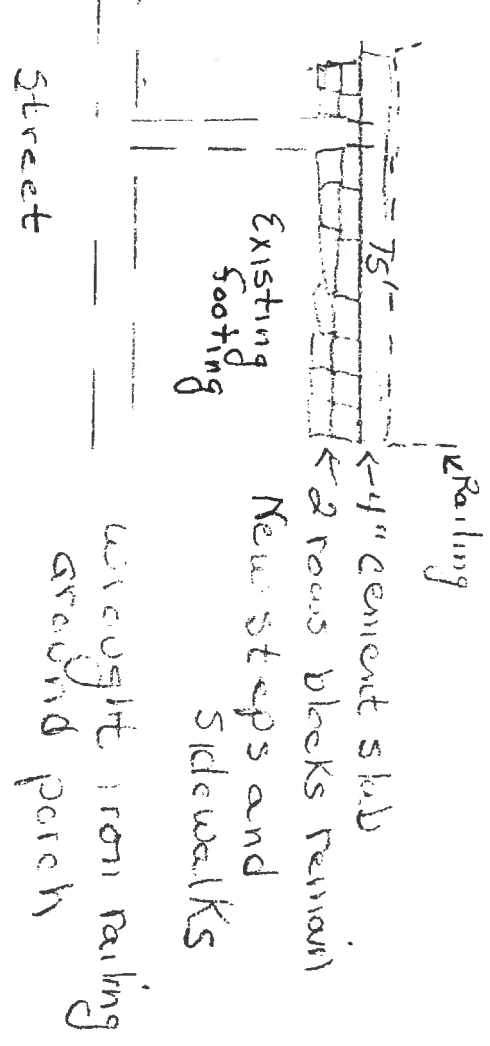 Railing
75'
← 4" cement slab
← 2 rows blocks remain
Existing
footing
New steps and
sidewalks
Street
wrought iron railing
around porch